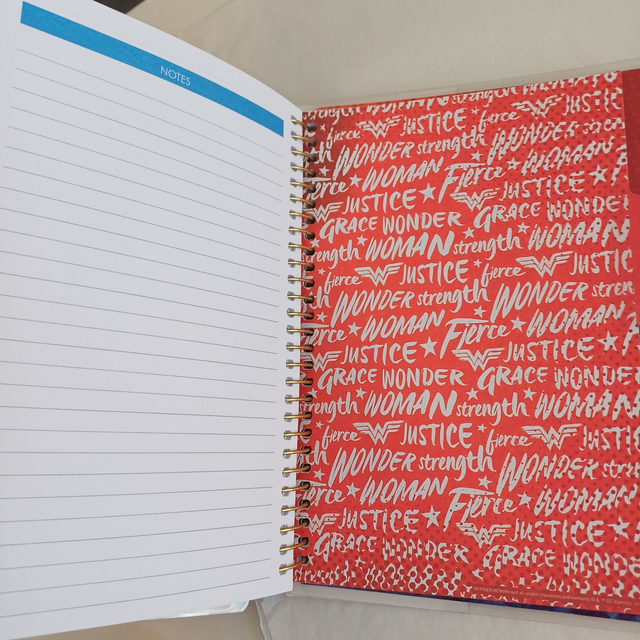 NOTES
strength WONDER
fierce JUSTICE fierce JUSTICE
WONDER strength WONDER
fierce WOMAN Fierce WOMAN
JUSTICE JUSTICE
GRACE WONDER GRACE WONDER
strength WOMAN strength WOMAN
fierce JUSTICE fierce JUSTIC
WONDER strength WONDER stren
WOMAN Fierce WOMAN
JUSTICE JUSTICE
GRACE WONDER GRACE WONDER
strength WOMAN strength WOMAN
fierce JUSTICE fierce JUSTI
WONDER strength WONDER
WOMAN Fierce WOMAN
JUSTICE JUSTICE
GRACE WONDER GRACE WONDER
WONDER WOMAN